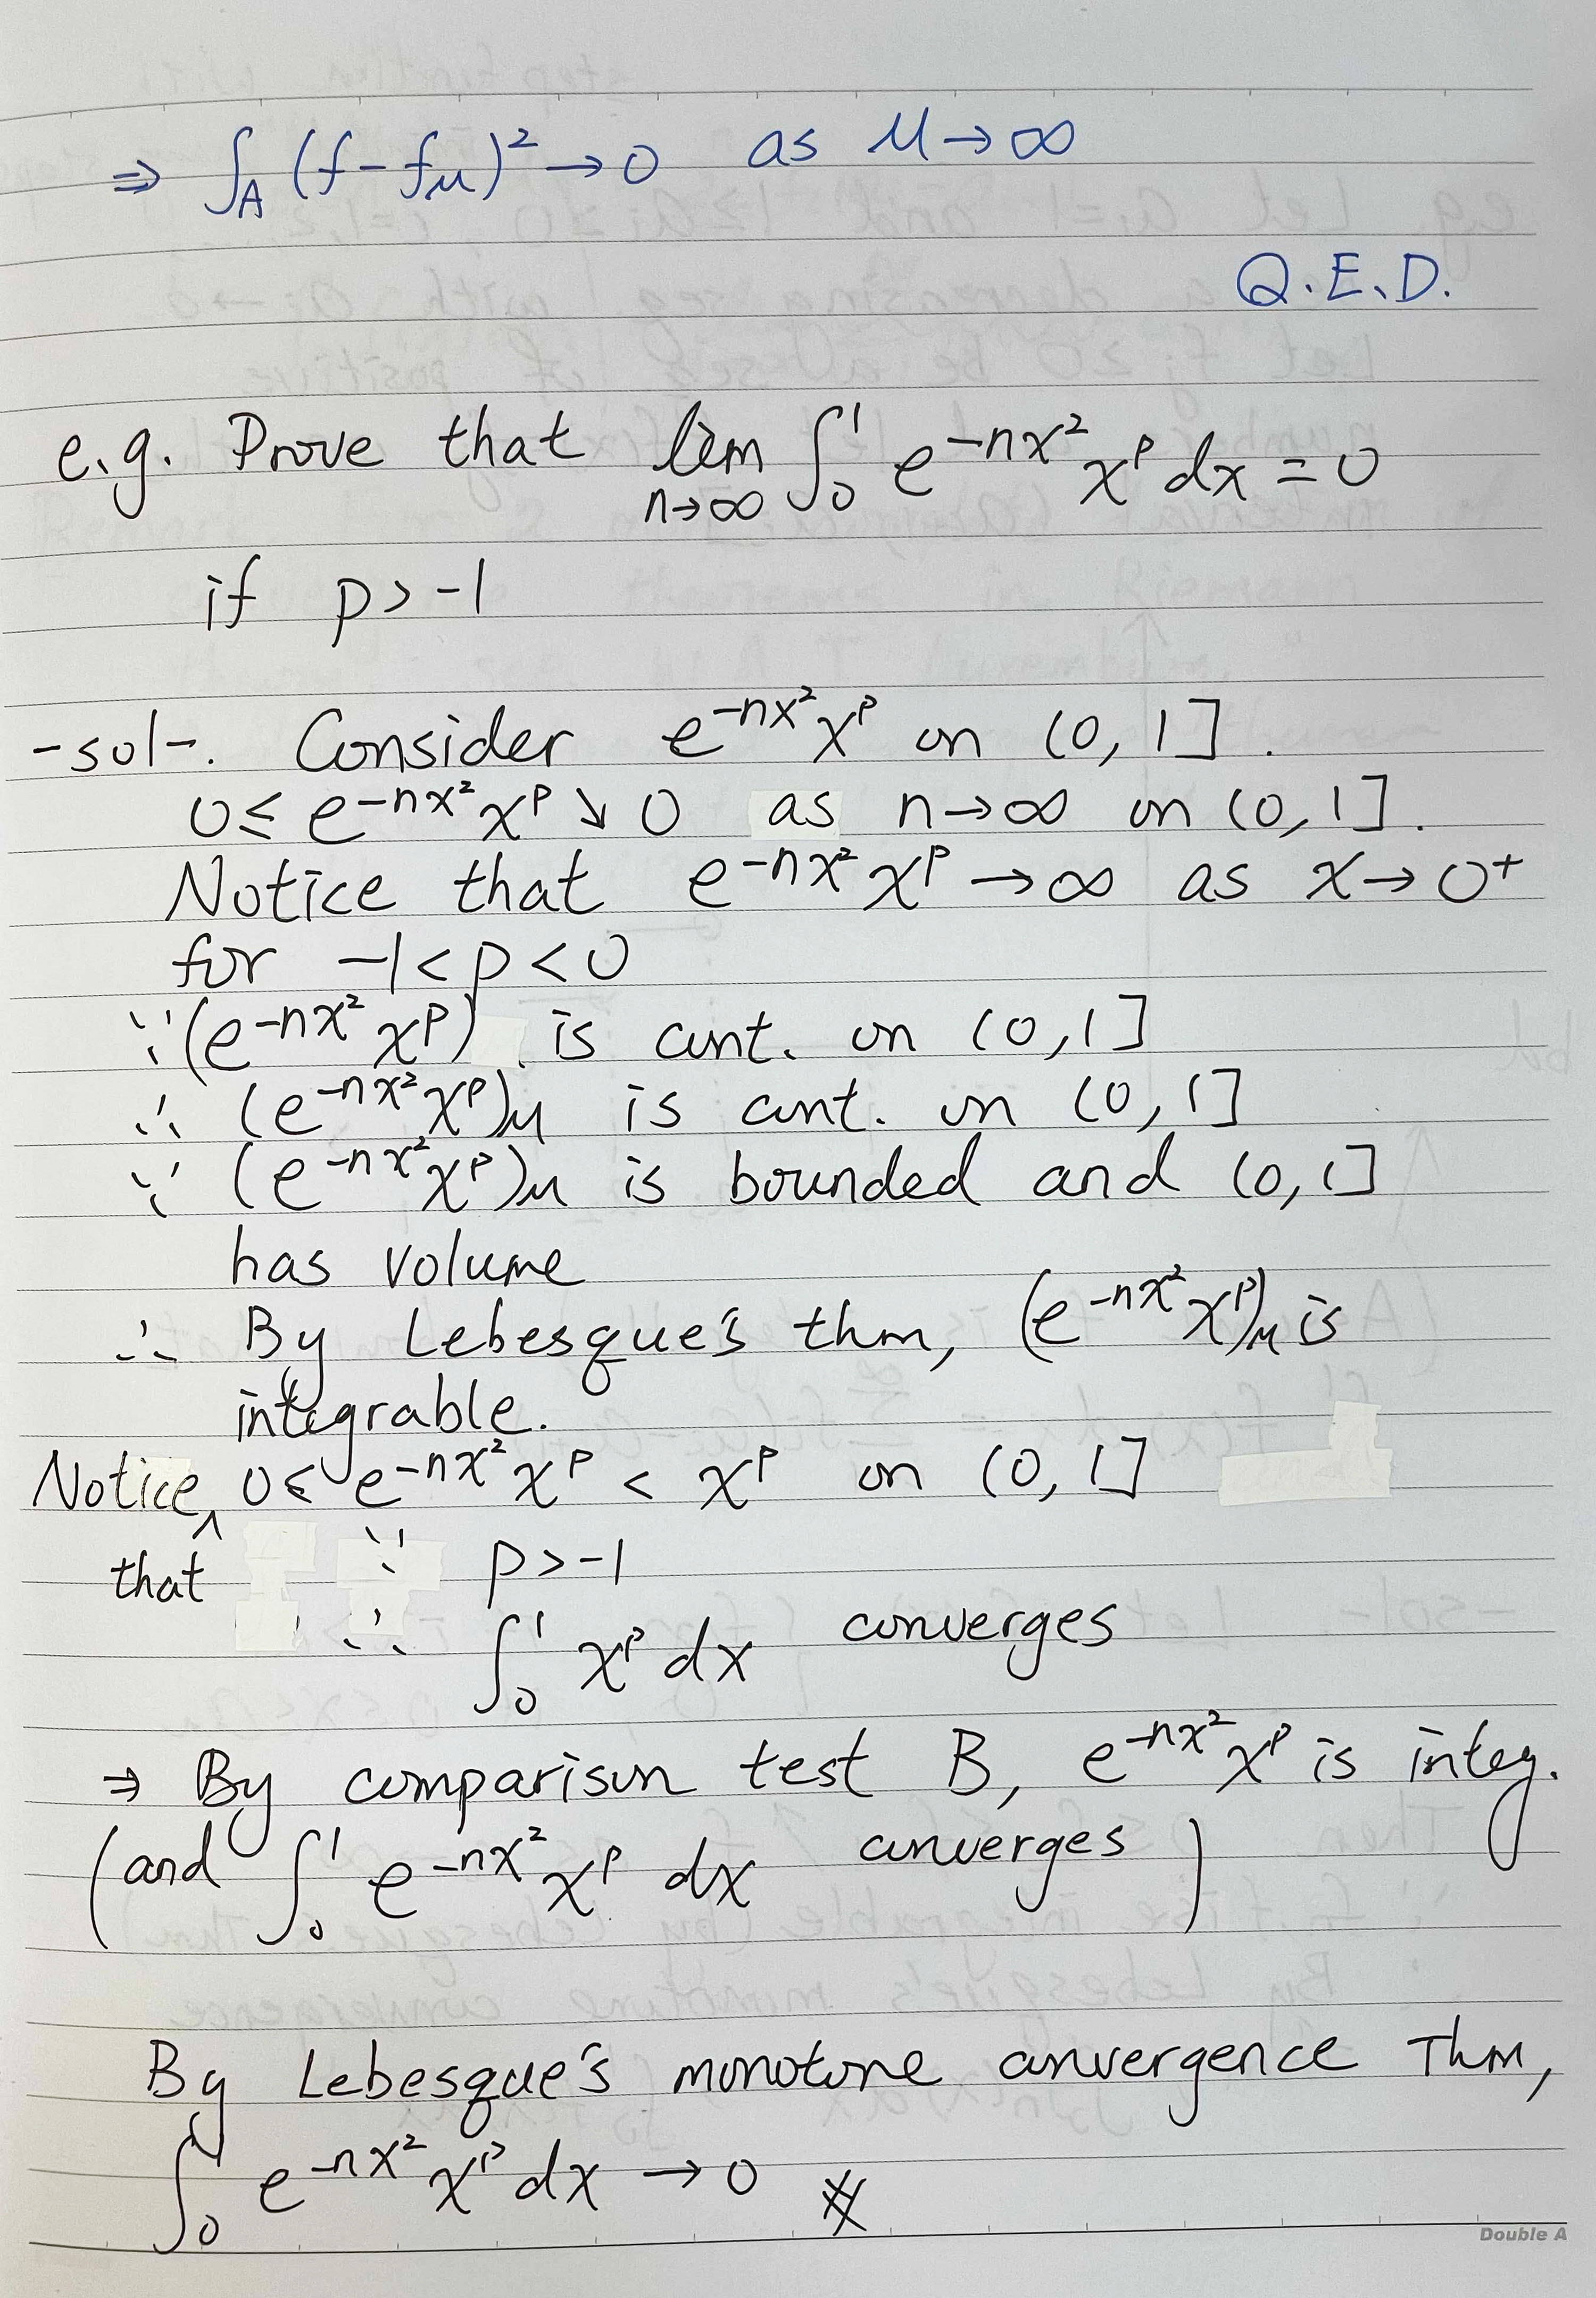 ⇒ ∫_A (f-f_M)² → 0 as M→∞
Q.E.D.
e.g. Prove that lim_{n→∞} ∫_0^1 e^{-nx²} x^p dx = 0
if p > -1
-sol-. Consider e^{-nx²} x^p on (0, 1].
0 ≤ e^{-nx²} x^p ↘ 0 as n→∞ on (0, 1].
Notice that e^{-nx²} x^p → ∞ as x→0⁺
for -1 < p < 0
∵ (e^{-nx²} x^p) is cont. on (0, 1]
∴ (e^{-nx²} x^p)_M is cont. on (0, 1]
∵ (e^{-nx²} x^p)_M is bounded and (0, 1]
has volume
∴ By Lebesque's thm, (e^{-nx²} x^p)_M is
integrable.
Notice that 0 ≤ e^{-nx²} x^p < x^p on (0, 1]
∵ p > -1
∴ ∫_0^1 x^p dx converges
⇒ By comparison test B, e^{-nx²} x^p is integ.
(and ∫_0^1 e^{-nx²} x^p dx converges)
By Lebesque's monotone convergence Thm,
∫_0^1 e^{-nx²} x^p dx → 0 ※
Double A